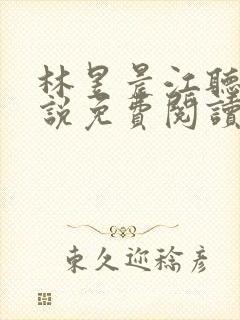 林昱景江聽
説免費閱讀
東久迩稔彦